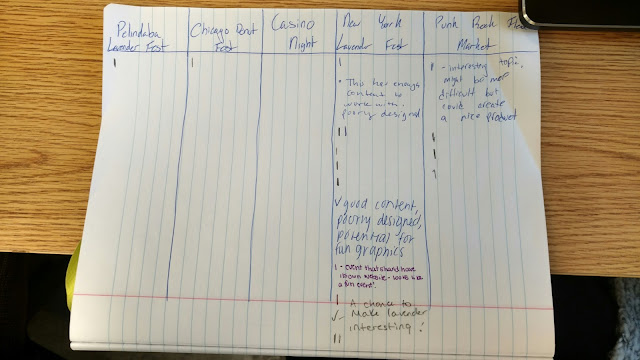 Pelindaba
Lavender Fest
Chicago Donut
Fest
Casino
Night
New York
Lavender Fest
Punk Rock Flea
Market
- interesting topic,
might be more
difficult but
could create
a nice product
• This has enough
content to
work with,
poorly designed
✓ good content,
poorly designed,
potential for
fun graphics
- event that should have
its own website - looks like
a fun event!
A chance to
✓- Make lavender
interesting!